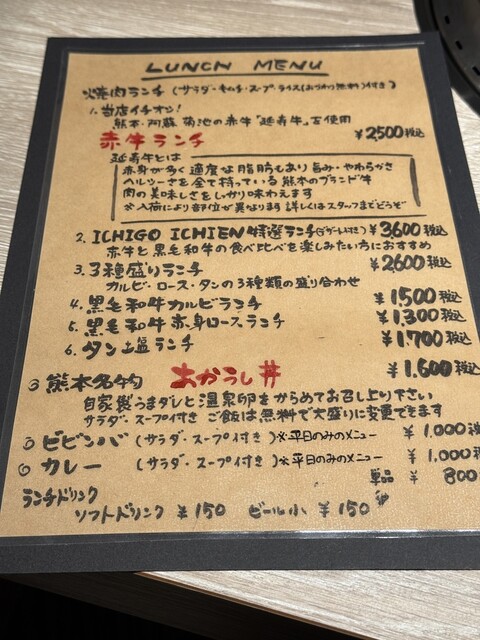 LUNCH MENU
焼肉ランチ (サラダ・キムチ・スープ・ライス(おかわり無料)付き)
1. 当店イチオシ!
熊本・阿蘇 菊池の赤牛"延寿牛"を使用
赤牛ランチ ¥2500税込
延寿牛とは
赤身が多く適度な脂肪もあり旨み・やわらかさ
ヘルシーさを全て持っている熊本のブランド牛
肉の美味しさをしっかり味わえます
※入荷により部位が異なります 詳しくはスタッフまでどうぞ
2. ICHIGO ICHIEN特選ランチ ¥3600税込
赤牛と黒毛和牛の食べ比べを楽しみたい方におすすめ
3. 3種盛りランチ ¥2600税込
カルビ・ロース・タンの3種類の盛り合わせ
4. 黒毛和牛カルビランチ ¥1500税込
5. 黒毛和牛赤身ロースランチ ¥1.300税込
6. タン塩ランチ ¥1.700税込
熊本名物 あかうし丼 ¥1.600税込
自家製うまダレと温泉卵をからめてお召し上り下さい
サラダ・スープ付き ご飯は無料で大盛りに変更できます
ビビンバ (サラダ・スープ付き)※平日のみのメニュー ¥1.000税
カレー (サラダ・スープ付き)※平日のみのメニュー ¥1.000税
単品 ¥800
ランチドリンク
ソフトドリンク ¥150 ビール小 ¥150